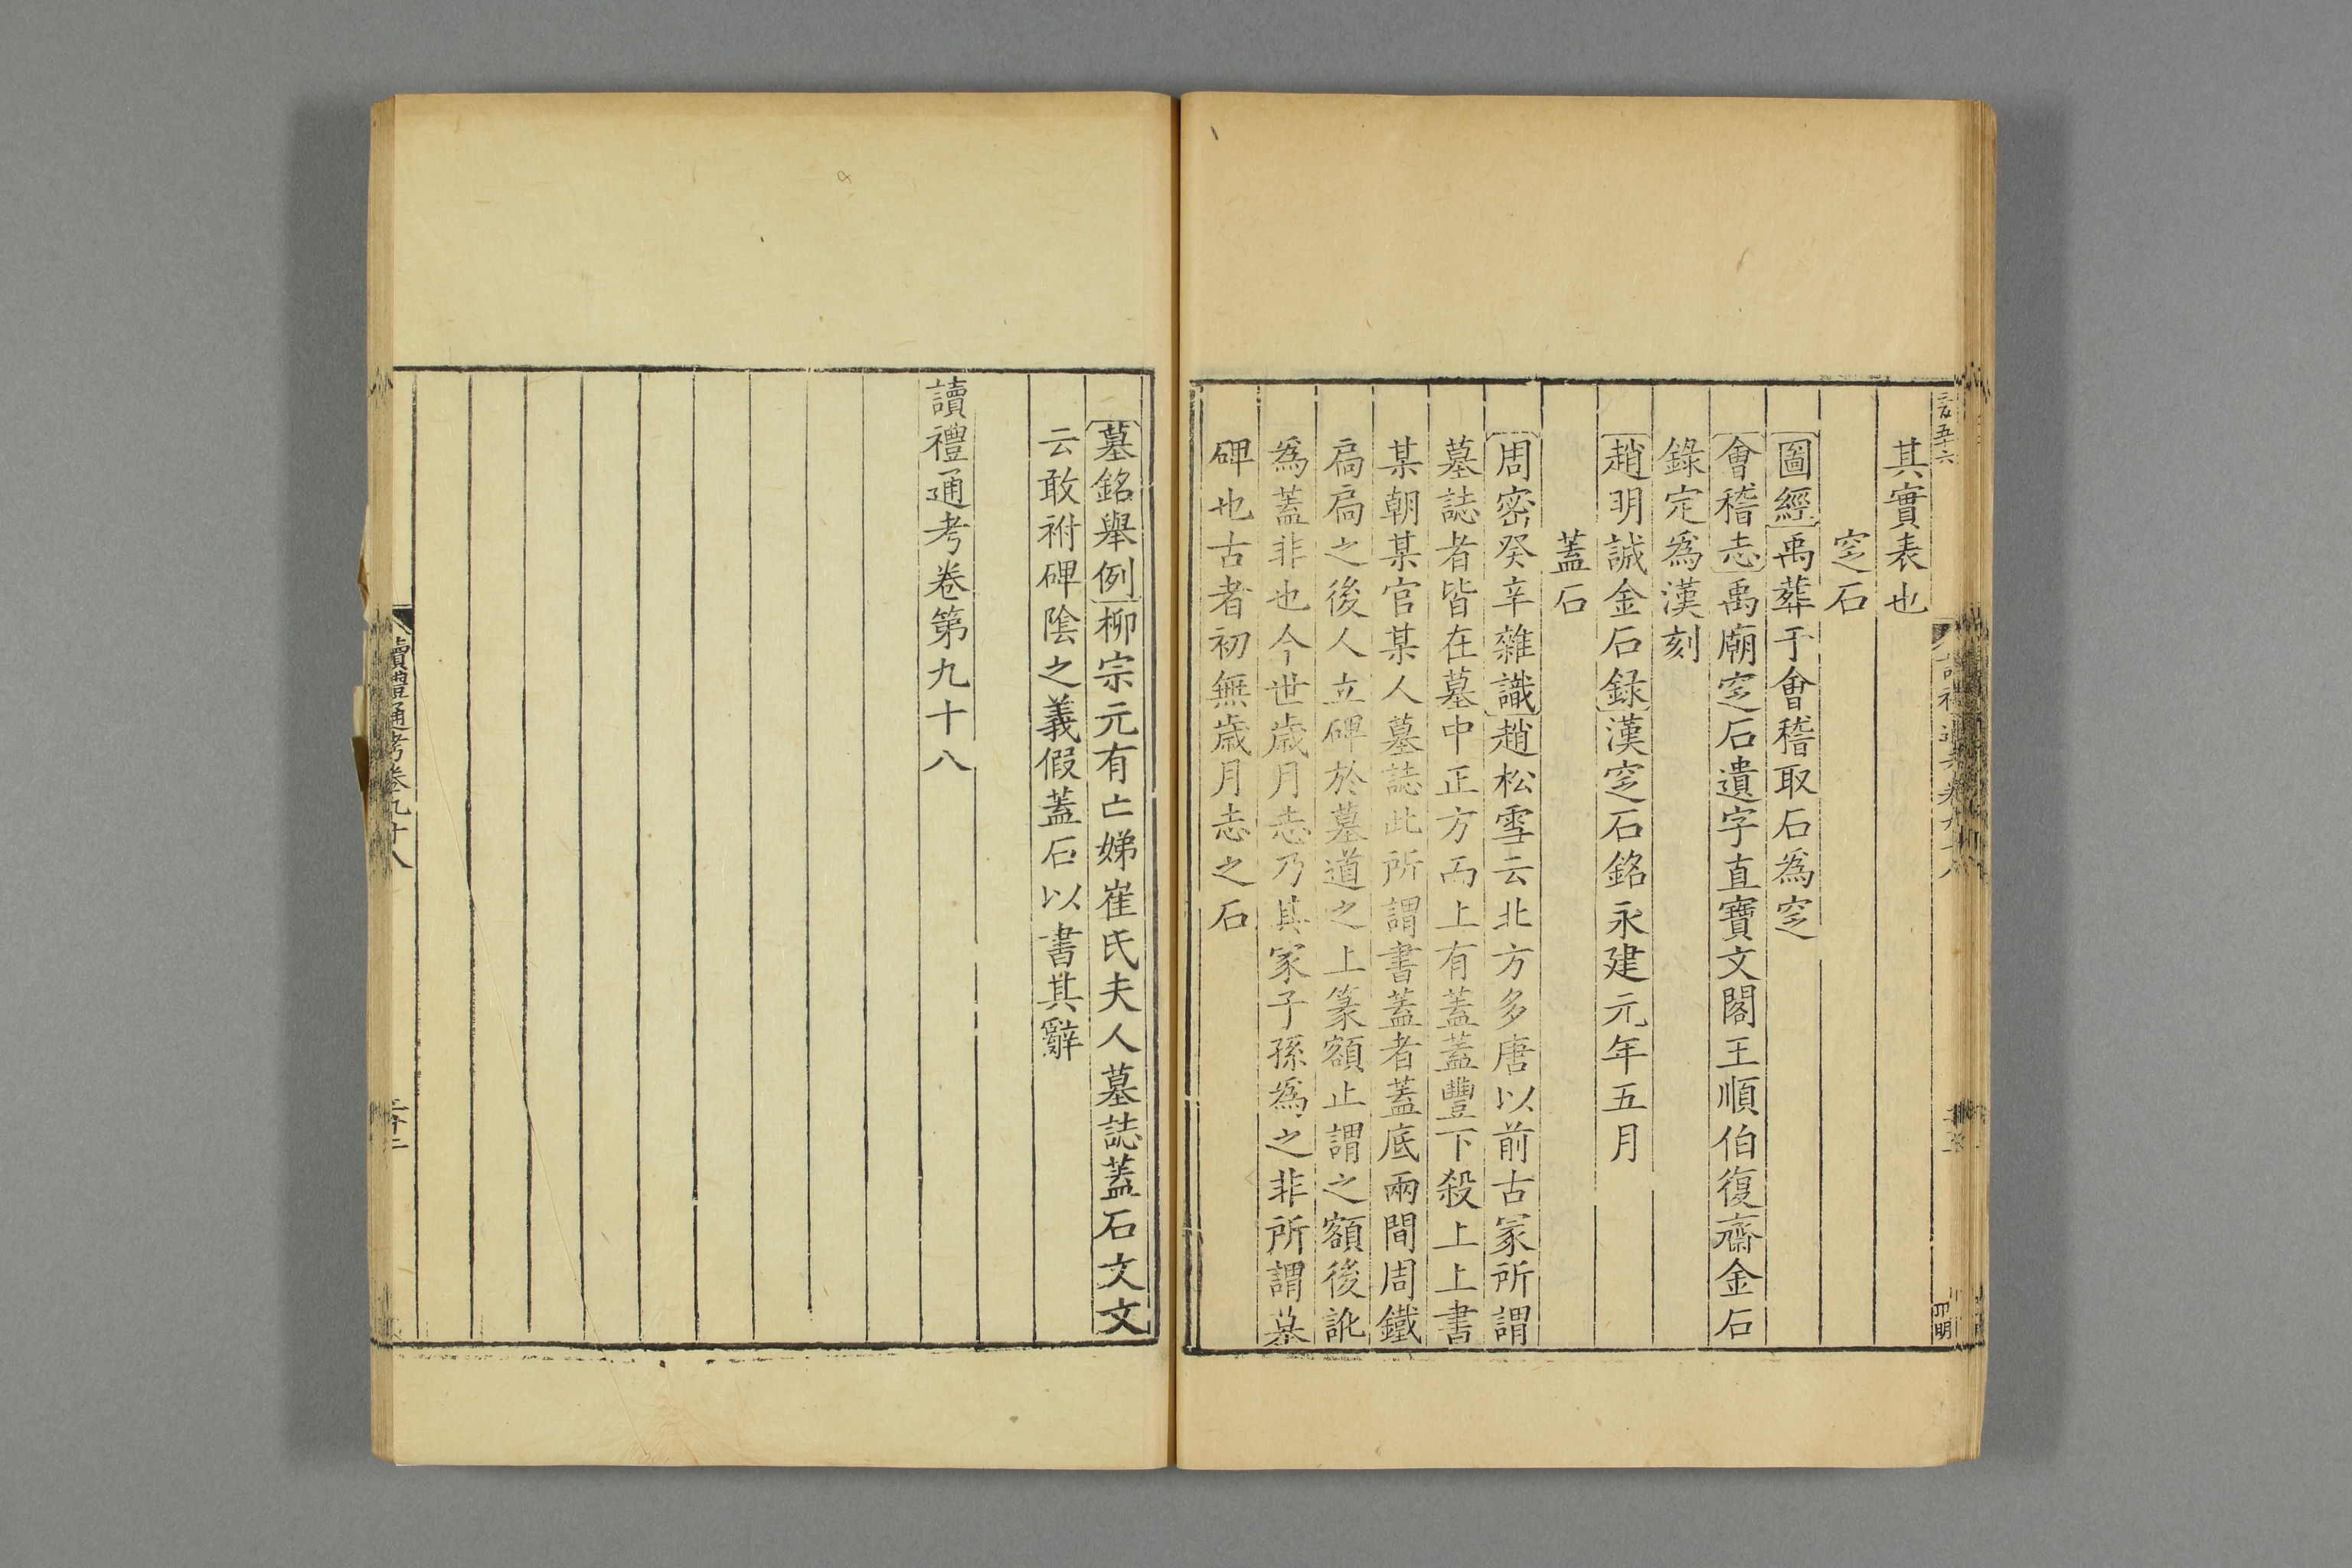 其實表也
窆石
圖經禹葬于會稽取石爲窆
會稽志禹廟窆石遺字直寶文閣王順伯復齋金石
錄定爲漢刻
趙明誠金石錄漢窆石銘永建元年五月
蓋石
周密癸辛雜識趙松雪云北方多唐以前古冢所謂
墓誌者皆在墓中正方而上有蓋蓋豐下殺上上書
某朝某官某人墓誌此所謂書蓋者蓋底兩間周鐵
扃扃之後人立碑於墓道之上篆額止謂之額後訛
爲蓋非也今世歲月志乃其家子孫爲之非所謂墓
碑也古者初無歲月志之石
墓銘舉例柳宗元有亡娣崔氏夫人墓誌蓋石文文
云敢祔碑陰之義假蓋石以書其辭
讀禮通考卷第九十八
讀禮通考卷九十八